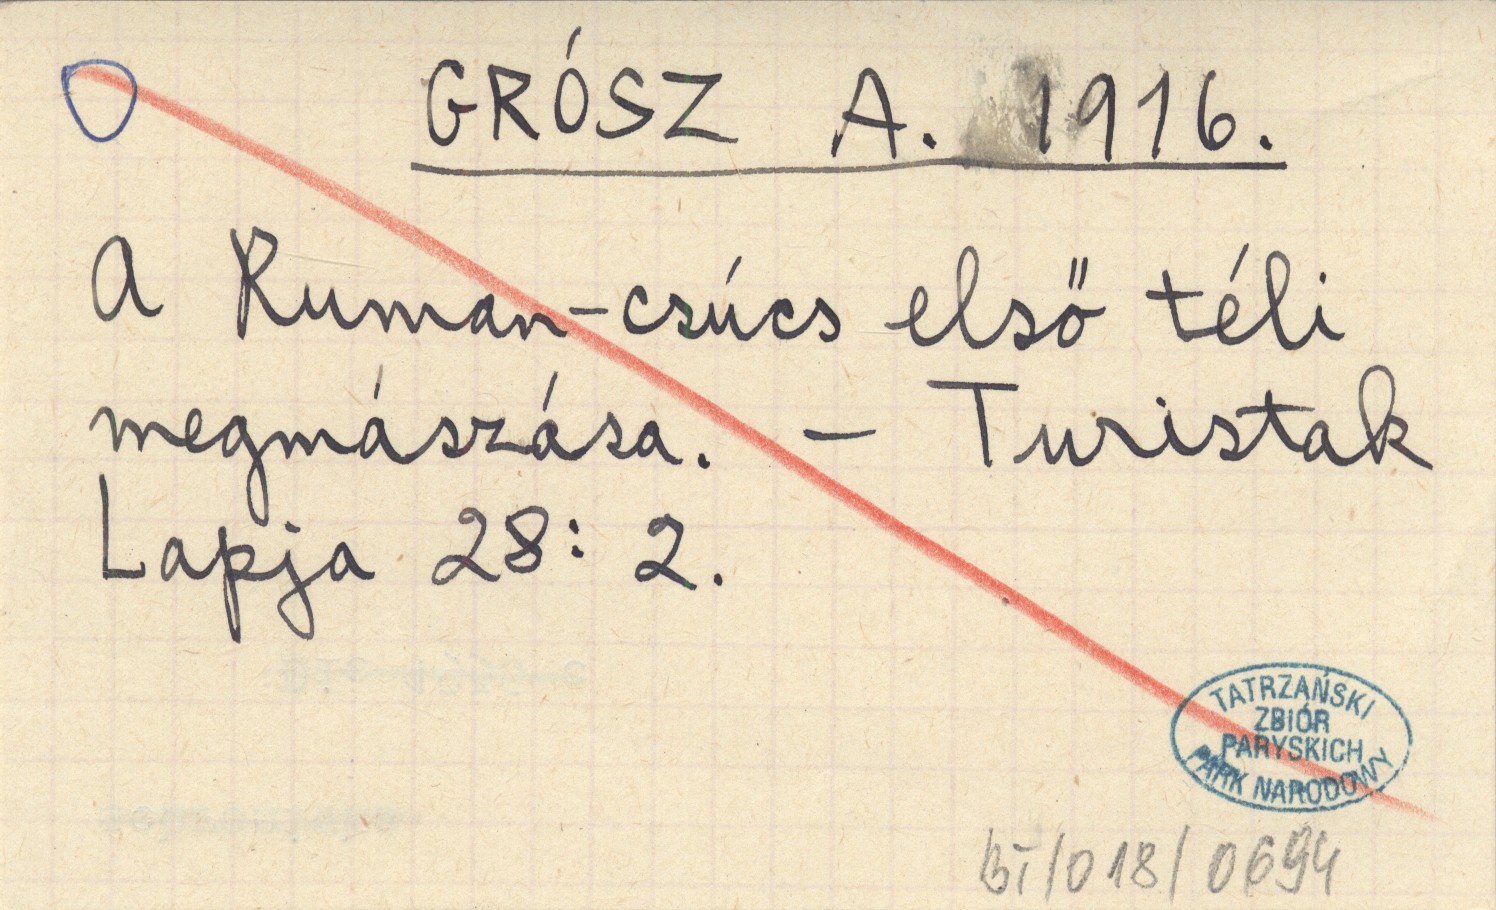 GRÓSZ A. 1916.
A Ruman-csúcs első téli
megmászása. — Turistak
Lapja 28: 2.
TATRZAŃSKI
ZBIÓR
PARYSKICH
PARK NARODOWY
BT/018/0694